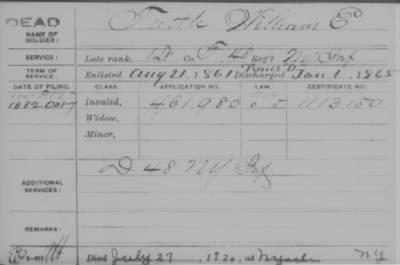 DEAD
NAME OF SOLDIER: Tuttle William E
SERVICE: Late rank, Co. F, 48 Reg't NY Inf
TERM OF SERVICE: Enlisted Aug 21, 1861 Discharged Jan 1, 1865
DATE OF FILING. CLASS. APPLICATION NO. LAW. CERTIFICATE NO.
1882 Oct 7 Invalid, 461,980 1113,150
Widow,
Minor,
ADDITIONAL SERVICES: D 48 NY Inf
REMARKS:
Died July 27, 1920, at Nyack NY